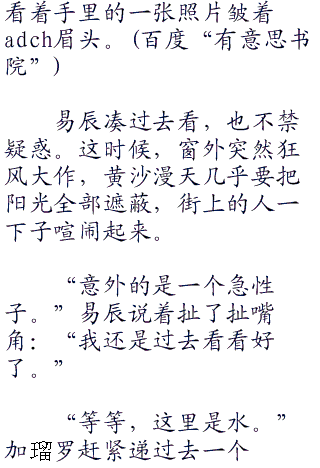 看着手里的一张照片皱着
adch眉头。(百度“有意思书
院”)
易辰凑过去看，也不禁
疑惑。这时候，窗外突然狂
风大作，黄沙漫天几乎要把
阳光全部遮蔽，街上的人一
下子喧闹起来。
“意外的是一个急性
子。”易辰说着扯了扯嘴
角：“我还是过去看看好
了。”
“等等，这里是水。”
加瑠罗赶紧递过去一个